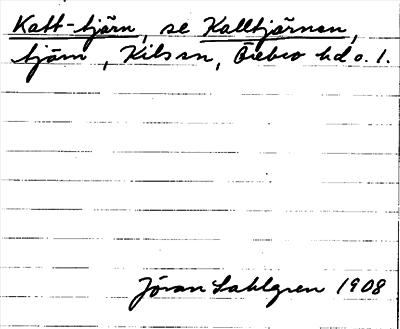 Katt-tjärn, se Kalltjärnen,
tjärn, Kils sn, Örebro hd o. l.
Jöran Sahlgren 1908